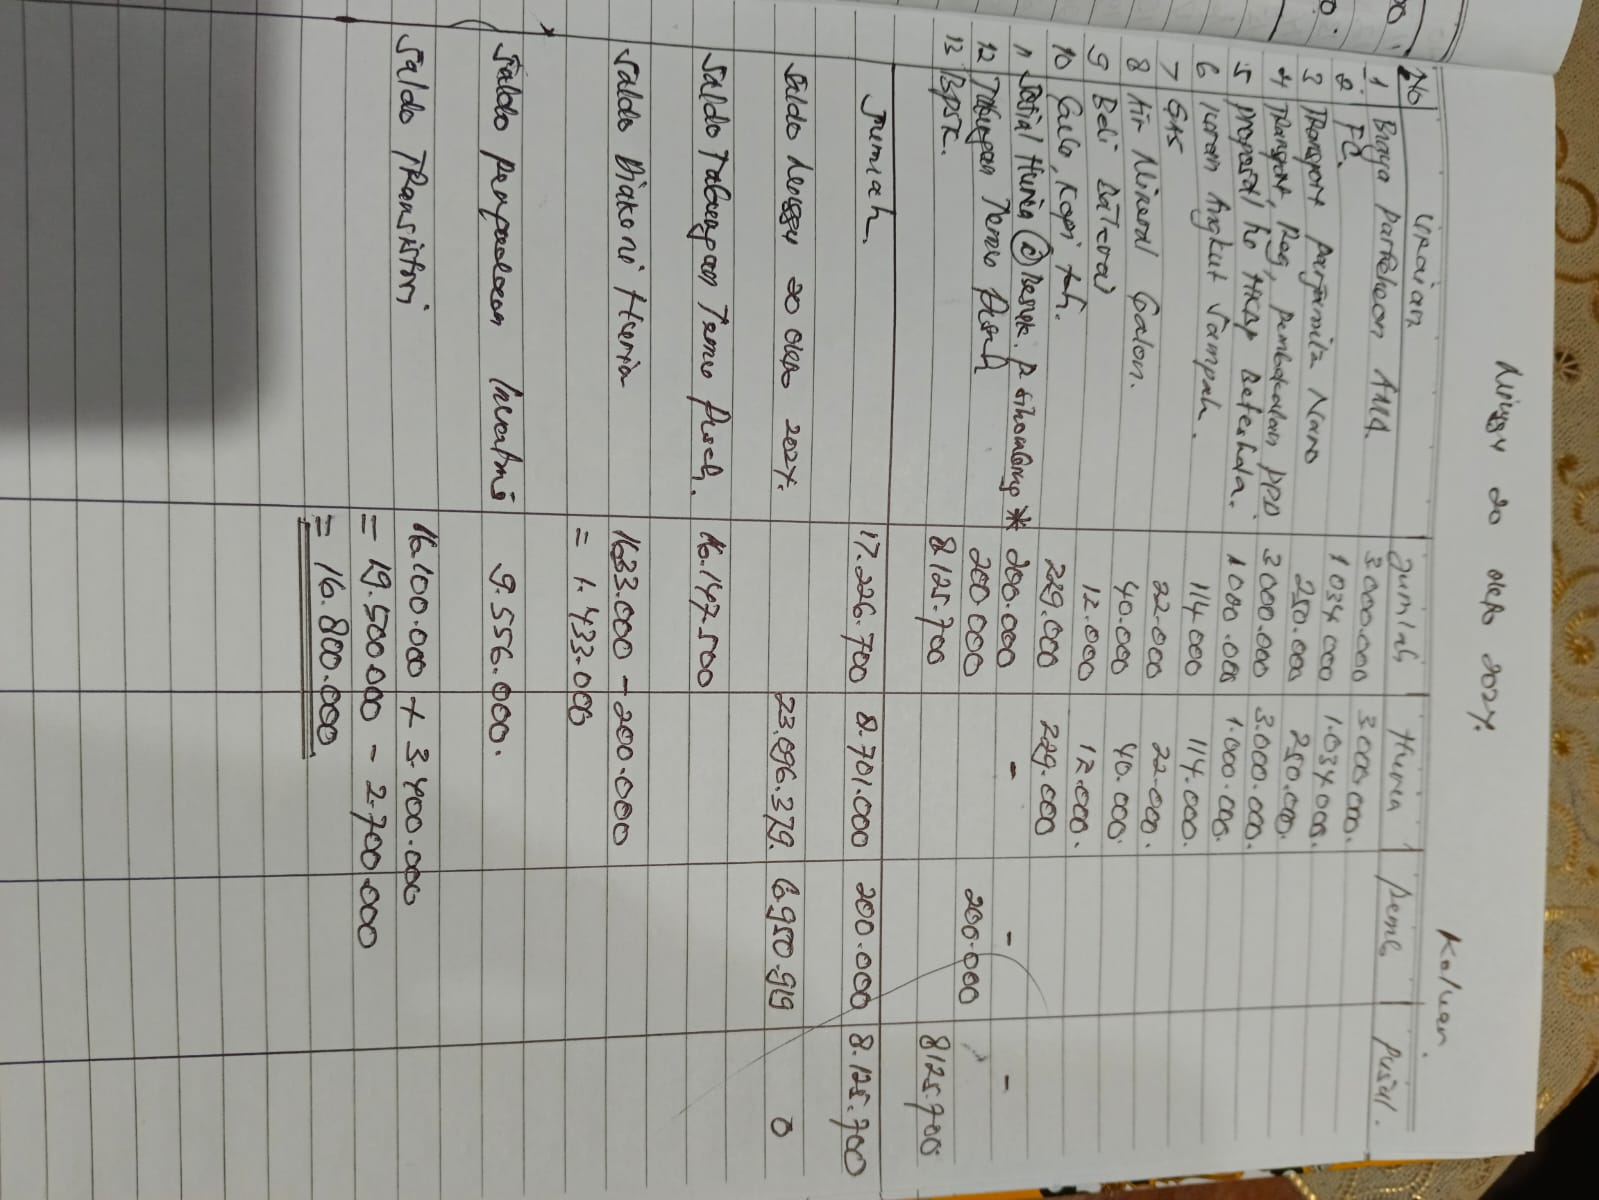 Minggu 20 Okto 2024.
Keluar.
No Uraian Jumlah Huria Pemb Pusat.
1 Biaya Partekeon AMA. 3.000.000 3.000.000.
2 FC. 1034.000 1.034.000.
3 Transport Parjamita Naro 250.000 250.000.
4 Transport, Reg, Pembekalan PPD. 3.000.000 3.000.000.
5 Proposal ke HKBP Beteshda. 1000.000 1.000.000.
6 Iuran Angkut Sampah. 114.000 114.000.
7 GAS 22.000 22.000.
8 Air Mineral Galon. 40.000 40.000.
9 Beli Baterai 12.000 12.000.
10 Gula, Kopi, teh. 229.000 229.000
11 Sosial Huria @ Besuk. P Sihombing * 200.000 - - -
12 Tabungan Temu Pisah 200.000 200.000
13 BPSK. 8.125.700 8125.700
Jumlah. 17.226.700 8.701.000 200.000 8.125.700
Saldo Minggu 20 Okto 2024. 23.096.379. 6.950.919 0
Saldo Tabungan Temu Pisah. 16.147.500
Saldo Diakoni Huria 1633.000 - 200.000
= 1.433.000
Saldo Pengadaan 9.556.000.
Saldo Transistori 16.100.000 + 3.400.000
= 19.500.000 - 2.700.000
= 16.800.000.